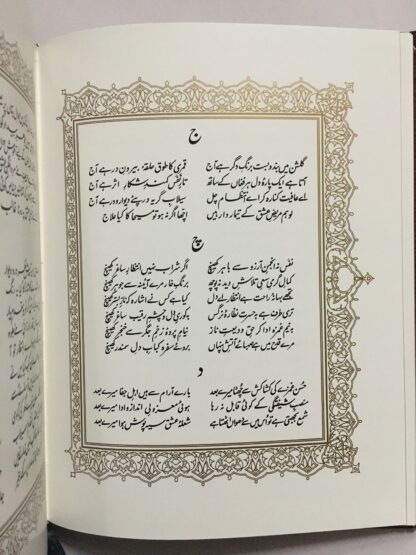 ج
گلشن میں بندوبست برنگِ دگر ہے آج قمری کا طوق حلقۂ بیرونِ در ہے آج
آتا ہے ایک پارۂ دل ہر فغاں کے ساتھ تارِ نفس کمندِ شکارِ اثر ہے آج
اے عافیت کنارہ کر اے انتظام چل سیلابِ گریہ درپے دیوار و در ہے آج
لو ہم مریضِ عشق کے تیمار دار ہیں اچھا اگر نہ ہو تو مسیحا کا کیا علاج
چ
نفس نہ انجمنِ آرزو سے باہر کھینچ اگر شراب نہیں انتظارِ ساغر کھینچ
کمالِ گرمیِ سعیِ تلاشِ دید نہ پوچھ برنگِ خار مرے آئینہ سے جوہر کھینچ
تجھے بہانۂ راحت ہے انتظار اے دل کیا ہے کس نے اشارہ کہ نازِ بستر کھینچ
تری طرف ہے بہ حسرت نظارۂ نرگس بکوریِ دل و چشمِ رقیب ساغر کھینچ
بہ نیم غمزہ ادا کر حقِ ودیعتِ ناز نیامِ پردۂ زخمِ جگر سے خنجر کھینچ
مرے قدح میں ہے صہبائے آتشِ پنہاں بروئے سفرہ کبابِ دلِ سمندر کھینچ
د
حسن غمزے کی کشاکش سے چھٹا میرے بعد بارے آرام سے ہیں اہلِ جفا میرے بعد
منصبِ شیفتگی کے کوئی قابل نہ رہا ہوئی معزولیِ انداز و ادا میرے بعد
شمع بجھتی ہے تو اس میں سے دھواں اٹھتا ہے شعلۂ عشق سیہ پوش ہوا میرے بعد